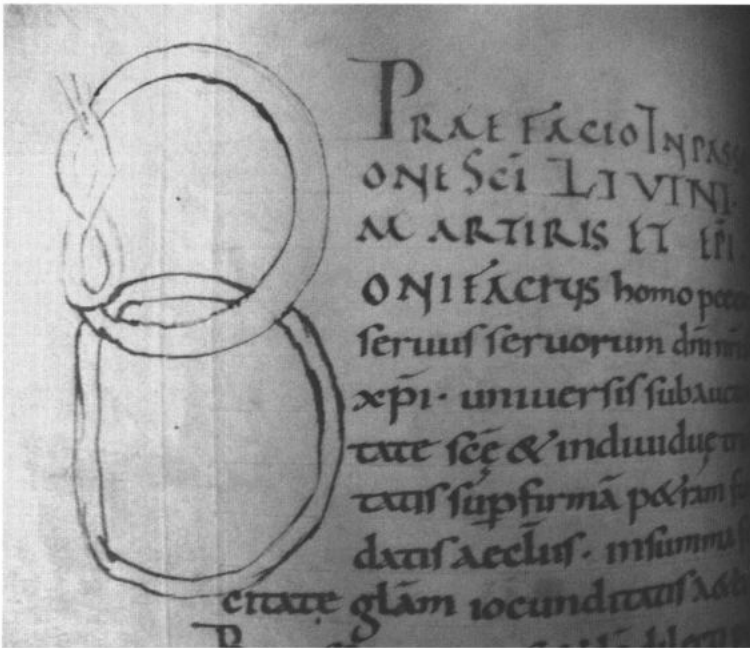 PRAEFACIO IN PASSI
ONE SCĪ LIVINI.
MARTIRIS ET EP̄I
BONIFACIUS homo pecc
seruus seruorum dn̄i nr̄i
xp̄i · uniuersis sub auc
tate scę̄ & indiuiduę tri
tatis sup̄ firmā p&ram fun
datis aecłiis · in summa
citate glām iocunditatis